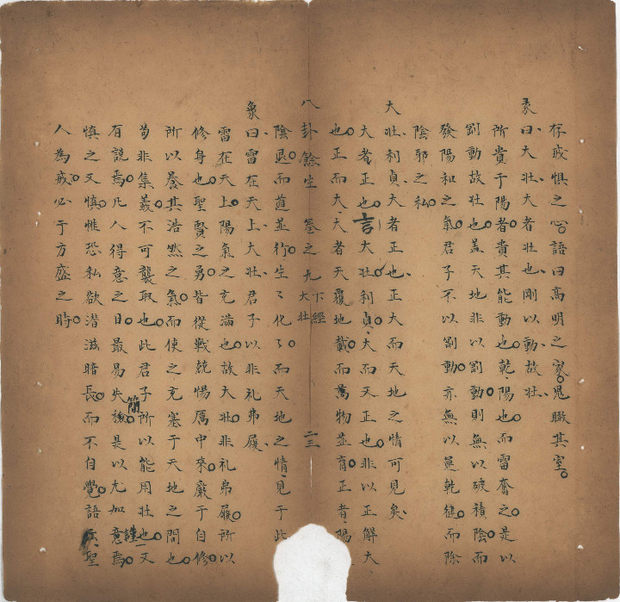 存戒懼之心語曰高明之家鬼瞰其室
彖曰大壯大者壯也剛以動故壯
所貴于陽者貴其能動也乾陽也而雷奮之是以
剛動故壯也蓋天地非以剛動則無以破積陰而
發陽和之氣君子不以剛動亦無以虽乾健而除
陰邪之私
大壯利貞大者正也正大而天地之情可見矣
大者正也言大壯利貞大而又正也非以正解大
也正而大大者天覆地載而萬物並育正者陽
八卦餘生 卷之九 下經 大壯 二三
陰退而道並行生々化々而天地之情見于此
象曰雷在天上大壯君子以非礼弗履
雷在天上陽氣之充滿也故大壯非礼弗履所以
修身也聖賢之勇皆從戰兢惕厲中來嚴于自修
所以養其浩然之氣而使之充塞于天地之間也
苟非集義不可襲取也此君子所以能用壯也又
有說焉凡人得意之日最易失簡是以尤如意焉謹
慎之又慎惟恐私欲潛滋暗長而不自覺語聖
人為戒必于方盛之時